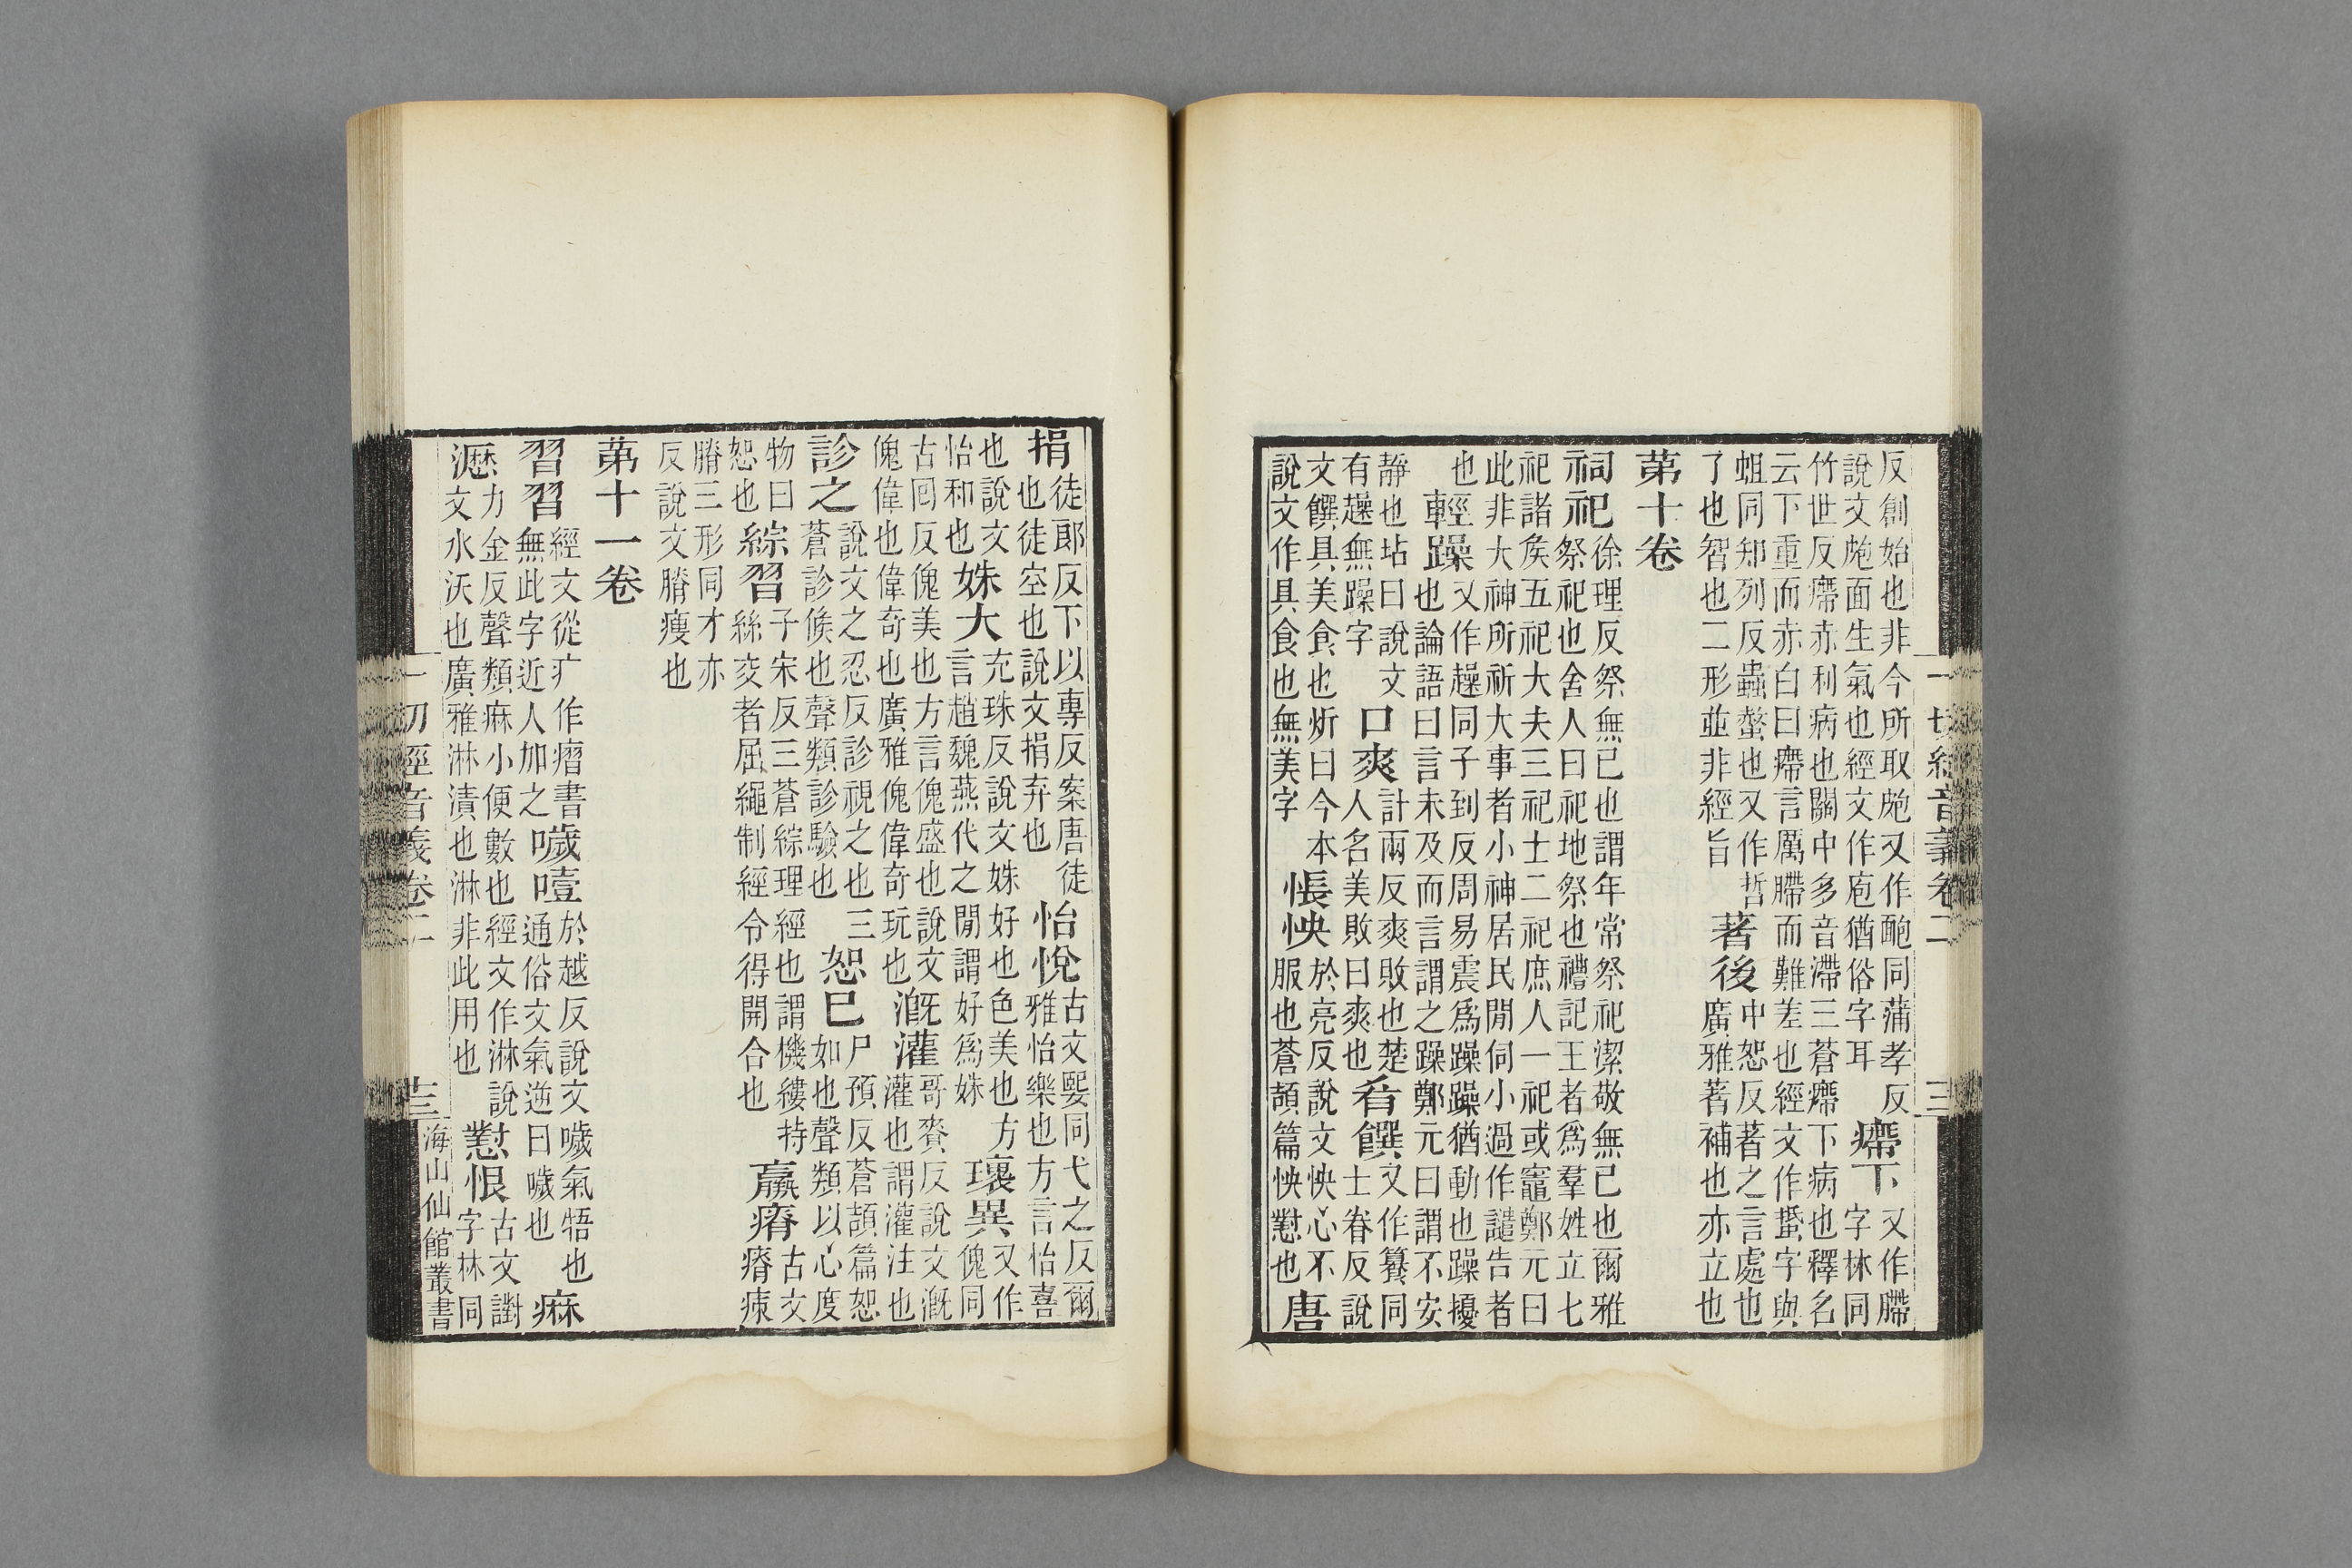 反創始也非今所取皰又作靤同蒲孝反
說文皰面生氣也經文作庖猶俗字耳
㿃下
又作
字林同
竹世反㿃赤利病也關中多音滯三蒼㿃下病也釋名
云下重而赤白曰㿃言厲而難差也經文作蜇字與
蛆同知列反蟲螫也又作哲
了也智也二形並非經旨
著後
中恕反著之言處也
廣雅著補也亦立也
苐十卷
祠祀
徐理反祭無已也謂年常祭祀潔敬無已也爾雅
祭祀也舍人曰祀地祭也禮記王者為羣姓立七
祀諸侯五祀大夫三祀士二祀庶人一祀或竈鄭元曰
此非大神所祈大事者小神居民閒伺小過作譴告者
也
輕躁
又作趮同子到反周易震為躁躁猶動也躁擾
也論語曰言未及而言謂之躁鄭元曰謂不安
靜也坫曰說文
有趮無躁字
口爽
計兩反爽敗也楚
人名美敗曰爽也
肴饌
又作籑同
士眷反說
文饌具美食也炘曰今本
說文作具食也無美字
悵怏
於亮反說文怏心不
服也蒼頡篇怏懟也
唐
一切經音義卷二
捐
徒郎反下以專反案唐徒
也徒空也說文捐弃也
怡悅
古文媐同弋之反爾
雅怡樂也方言怡喜
也說文
怡和也
姝大
充珠反說文姝好也色美也方
言趙魏燕代之閒謂好為姝
瓌異
又作
傀同
古回反傀美也方言傀盛也說文
傀偉也偉奇也廣雅傀偉奇玩也
漑灌
哥賚反說文漑
灌也謂灌注也
診之
說文之忍反診視之也三
蒼診候也聲類診驗也
恕已
尸預反蒼頡篇恕
如也聲類以心度
物曰
恕也
綜習
子宋反三蒼綜理經也謂機縷持
絲交者屈繩制經令得開合也
羸瘠
古文
瘠㾊
膌三形同才亦
反說文膌瘦也
苐十一卷
習習
經文從疒作㿇書
無此字近人加之
噦噎
於越反說文噦氣啎也
通俗文氣逆曰噦也
痳瀝
力金反聲類痳小便數也經文作淋說
文水沃也廣雅淋漬也淋非此用也
懟恨
古文譵
字林同
一切經音義卷二
十三
海山仙館叢書